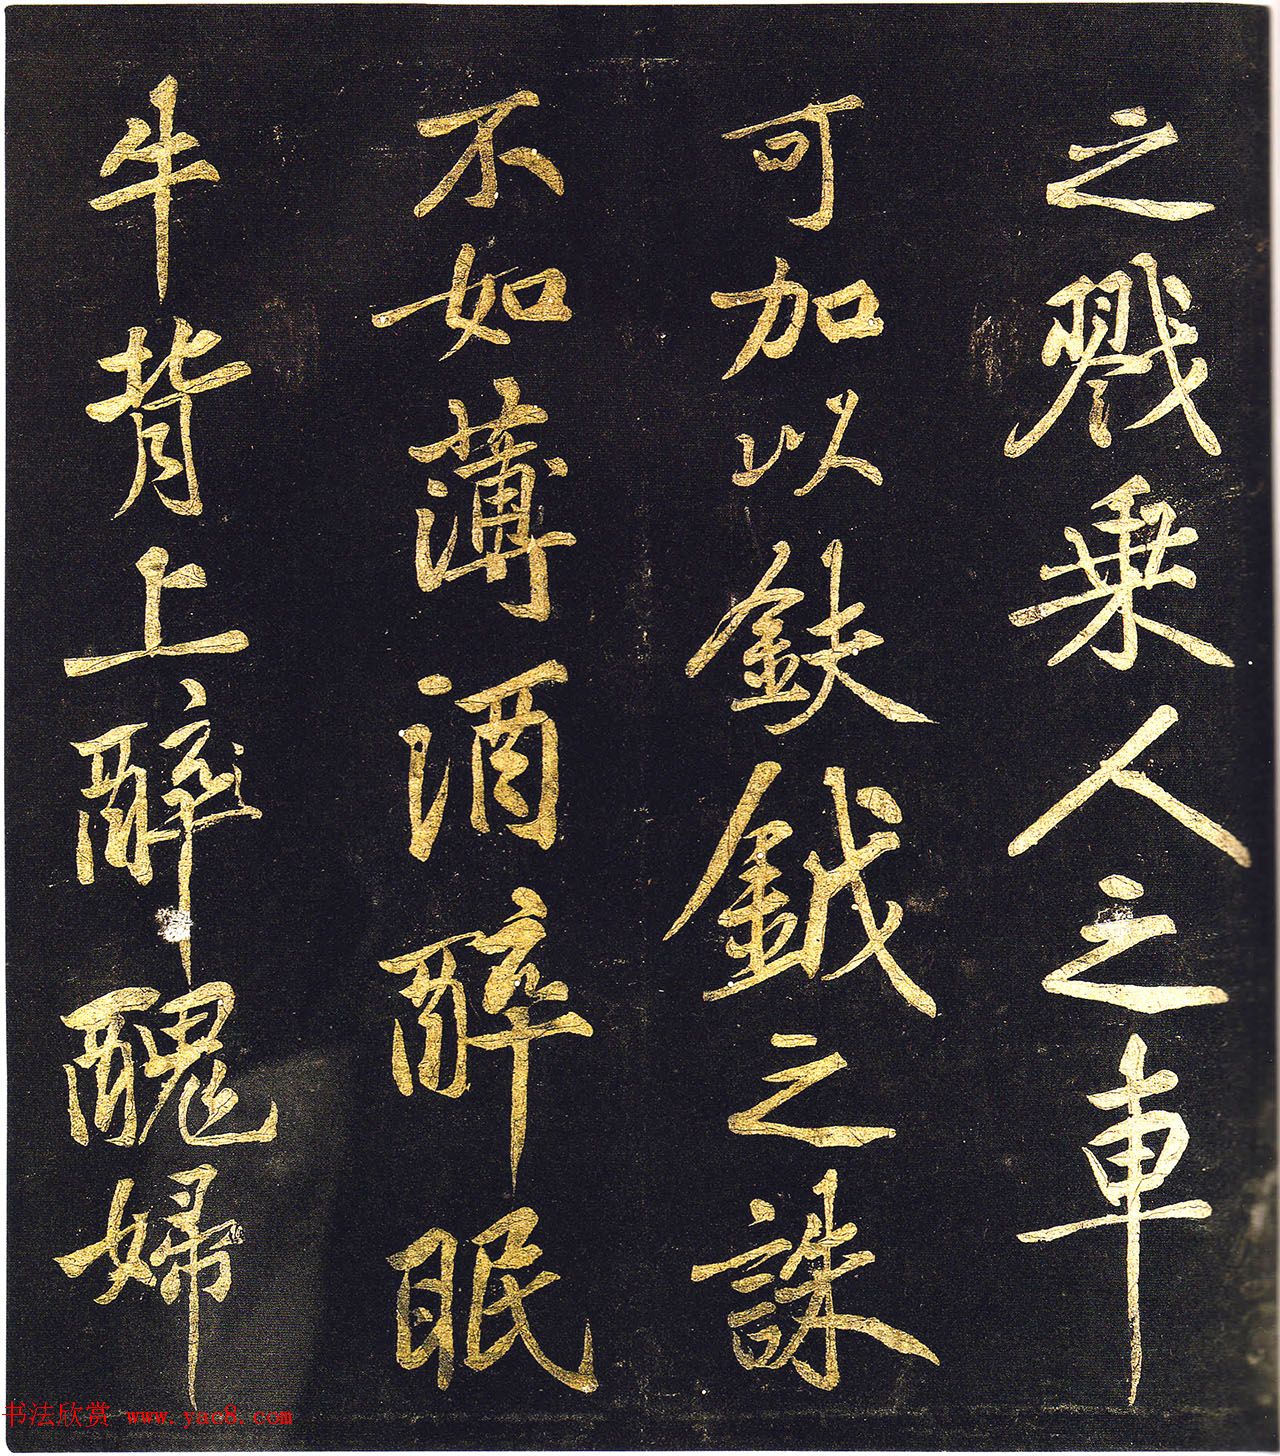 之戮乗人之車
可加以鈇鉞之誅
不如薄酒醉眠
牛背上醉醜婦
书法欣赏 www.yac8.com